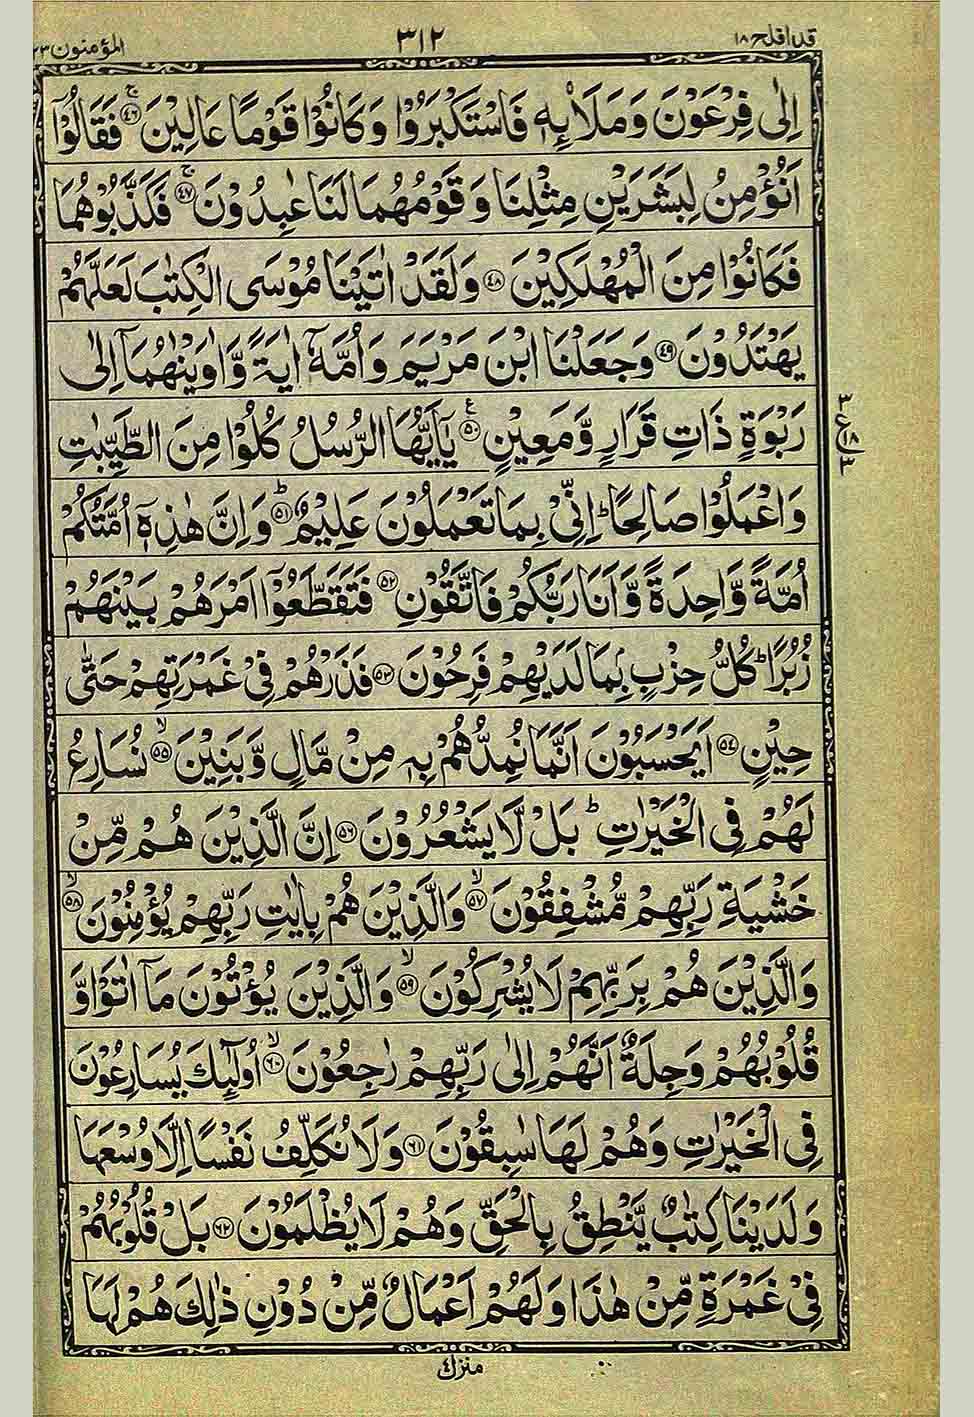 قد افلح ١٨
٣١٢
المؤمنون ٢٣
اِلٰى فِرْعَوْنَ وَمَلَا۟ئِهٖ فَاسْتَكْبَرُوْا وَكَانُوْا قَوْمًا عَالِيْنَ ۚ﴿٤٦﴾ فَقَالُوْٓا
اَنُؤْمِنُ لِبَشَرَيْنِ مِثْلِنَا وَقَوْمُهُمَا لَنَا عٰبِدُوْنَ ۚ﴿٤٧﴾ فَكَذَّبُوْهُمَا
فَكَانُوْا مِنَ الْمُهْلَكِيْنَ ﴿٤٨﴾ وَلَقَدْ اٰتَيْنَا مُوْسَى الْكِتٰبَ لَعَلَّهُمْ
يَهْتَدُوْنَ ﴿٤٩﴾ وَجَعَلْنَا ابْنَ مَرْيَمَ وَاُمَّهٗٓ اٰيَةً وَّاٰوَيْنٰهُمَآ اِلٰى
رَبْوَةٍ ذَاتِ قَرَارٍ وَّمَعِيْنٍ ﴿٥٠﴾ع يٰٓاَيُّهَا الرُّسُلُ كُلُوْا مِنَ الطَّيِّبٰتِ
٣ ع ١٨ ٣
وَاعْمَلُوْا صَالِحًا ؕ اِنِّىْ بِمَا تَعْمَلُوْنَ عَلِيْمٌ ؕ﴿٥١﴾ وَاِنَّ هٰذِهٖٓ اُمَّتُكُمْ
اُمَّةً وَّاحِدَةً وَّاَنَا رَبُّكُمْ فَاتَّقُوْنِ ﴿٥٢﴾ فَتَقَطَّعُوْٓا اَمْرَهُمْ بَيْنَهُمْ
زُبُرًا ؕ كُلُّ حِزْبٍۭ بِمَا لَدَيْهِمْ فَرِحُوْنَ ﴿٥٣﴾ فَذَرْهُمْ فِىْ غَمْرَتِهِمْ حَتّٰى
حِيْنٍ ﴿٥٤﴾ اَيَحْسَبُوْنَ اَنَّمَا نُمِدُّهُمْ بِهٖ مِنْ مَّالٍ وَّبَنِيْنَ ۙ﴿٥٥﴾ نُسَارِعُ
لَهُمْ فِى الْخَيْرٰتِ ؕ بَلْ لَّا يَشْعُرُوْنَ ﴿٥٦﴾ اِنَّ الَّذِيْنَ هُمْ مِّنْ
خَشْيَةِ رَبِّهِمْ مُّشْفِقُوْنَ ۙ﴿٥٧﴾ وَالَّذِيْنَ هُمْ بِاٰيٰتِ رَبِّهِمْ يُؤْمِنُوْنَ ۙ﴿٥٨﴾
وَالَّذِيْنَ هُمْ بِرَبِّهِمْ لَا يُشْرِكُوْنَ ۙ﴿٥٩﴾ وَالَّذِيْنَ يُؤْتُوْنَ مَآ اٰتَوْا وَّ
قُلُوْبُهُمْ وَجِلَةٌ اَنَّهُمْ اِلٰى رَبِّهِمْ رٰجِعُوْنَ ۙ﴿٦٠﴾ اُولٰٓئِكَ يُسَارِعُوْنَ
فِى الْخَيْرٰتِ وَهُمْ لَهَا سٰبِقُوْنَ ﴿٦١﴾ وَلَا نُكَلِّفُ نَفْسًا اِلَّا وُسْعَهَا
وَلَدَيْنَا كِتٰبٌ يَّنْطِقُ بِالْحَقِّ وَهُمْ لَا يُظْلَمُوْنَ ﴿٦٢﴾ بَلْ قُلُوْبُهُمْ
فِىْ غَمْرَةٍ مِّنْ هٰذَا وَلَهُمْ اَعْمَالٌ مِّنْ دُوْنِ ذٰلِكَ هُمْ لَهَا